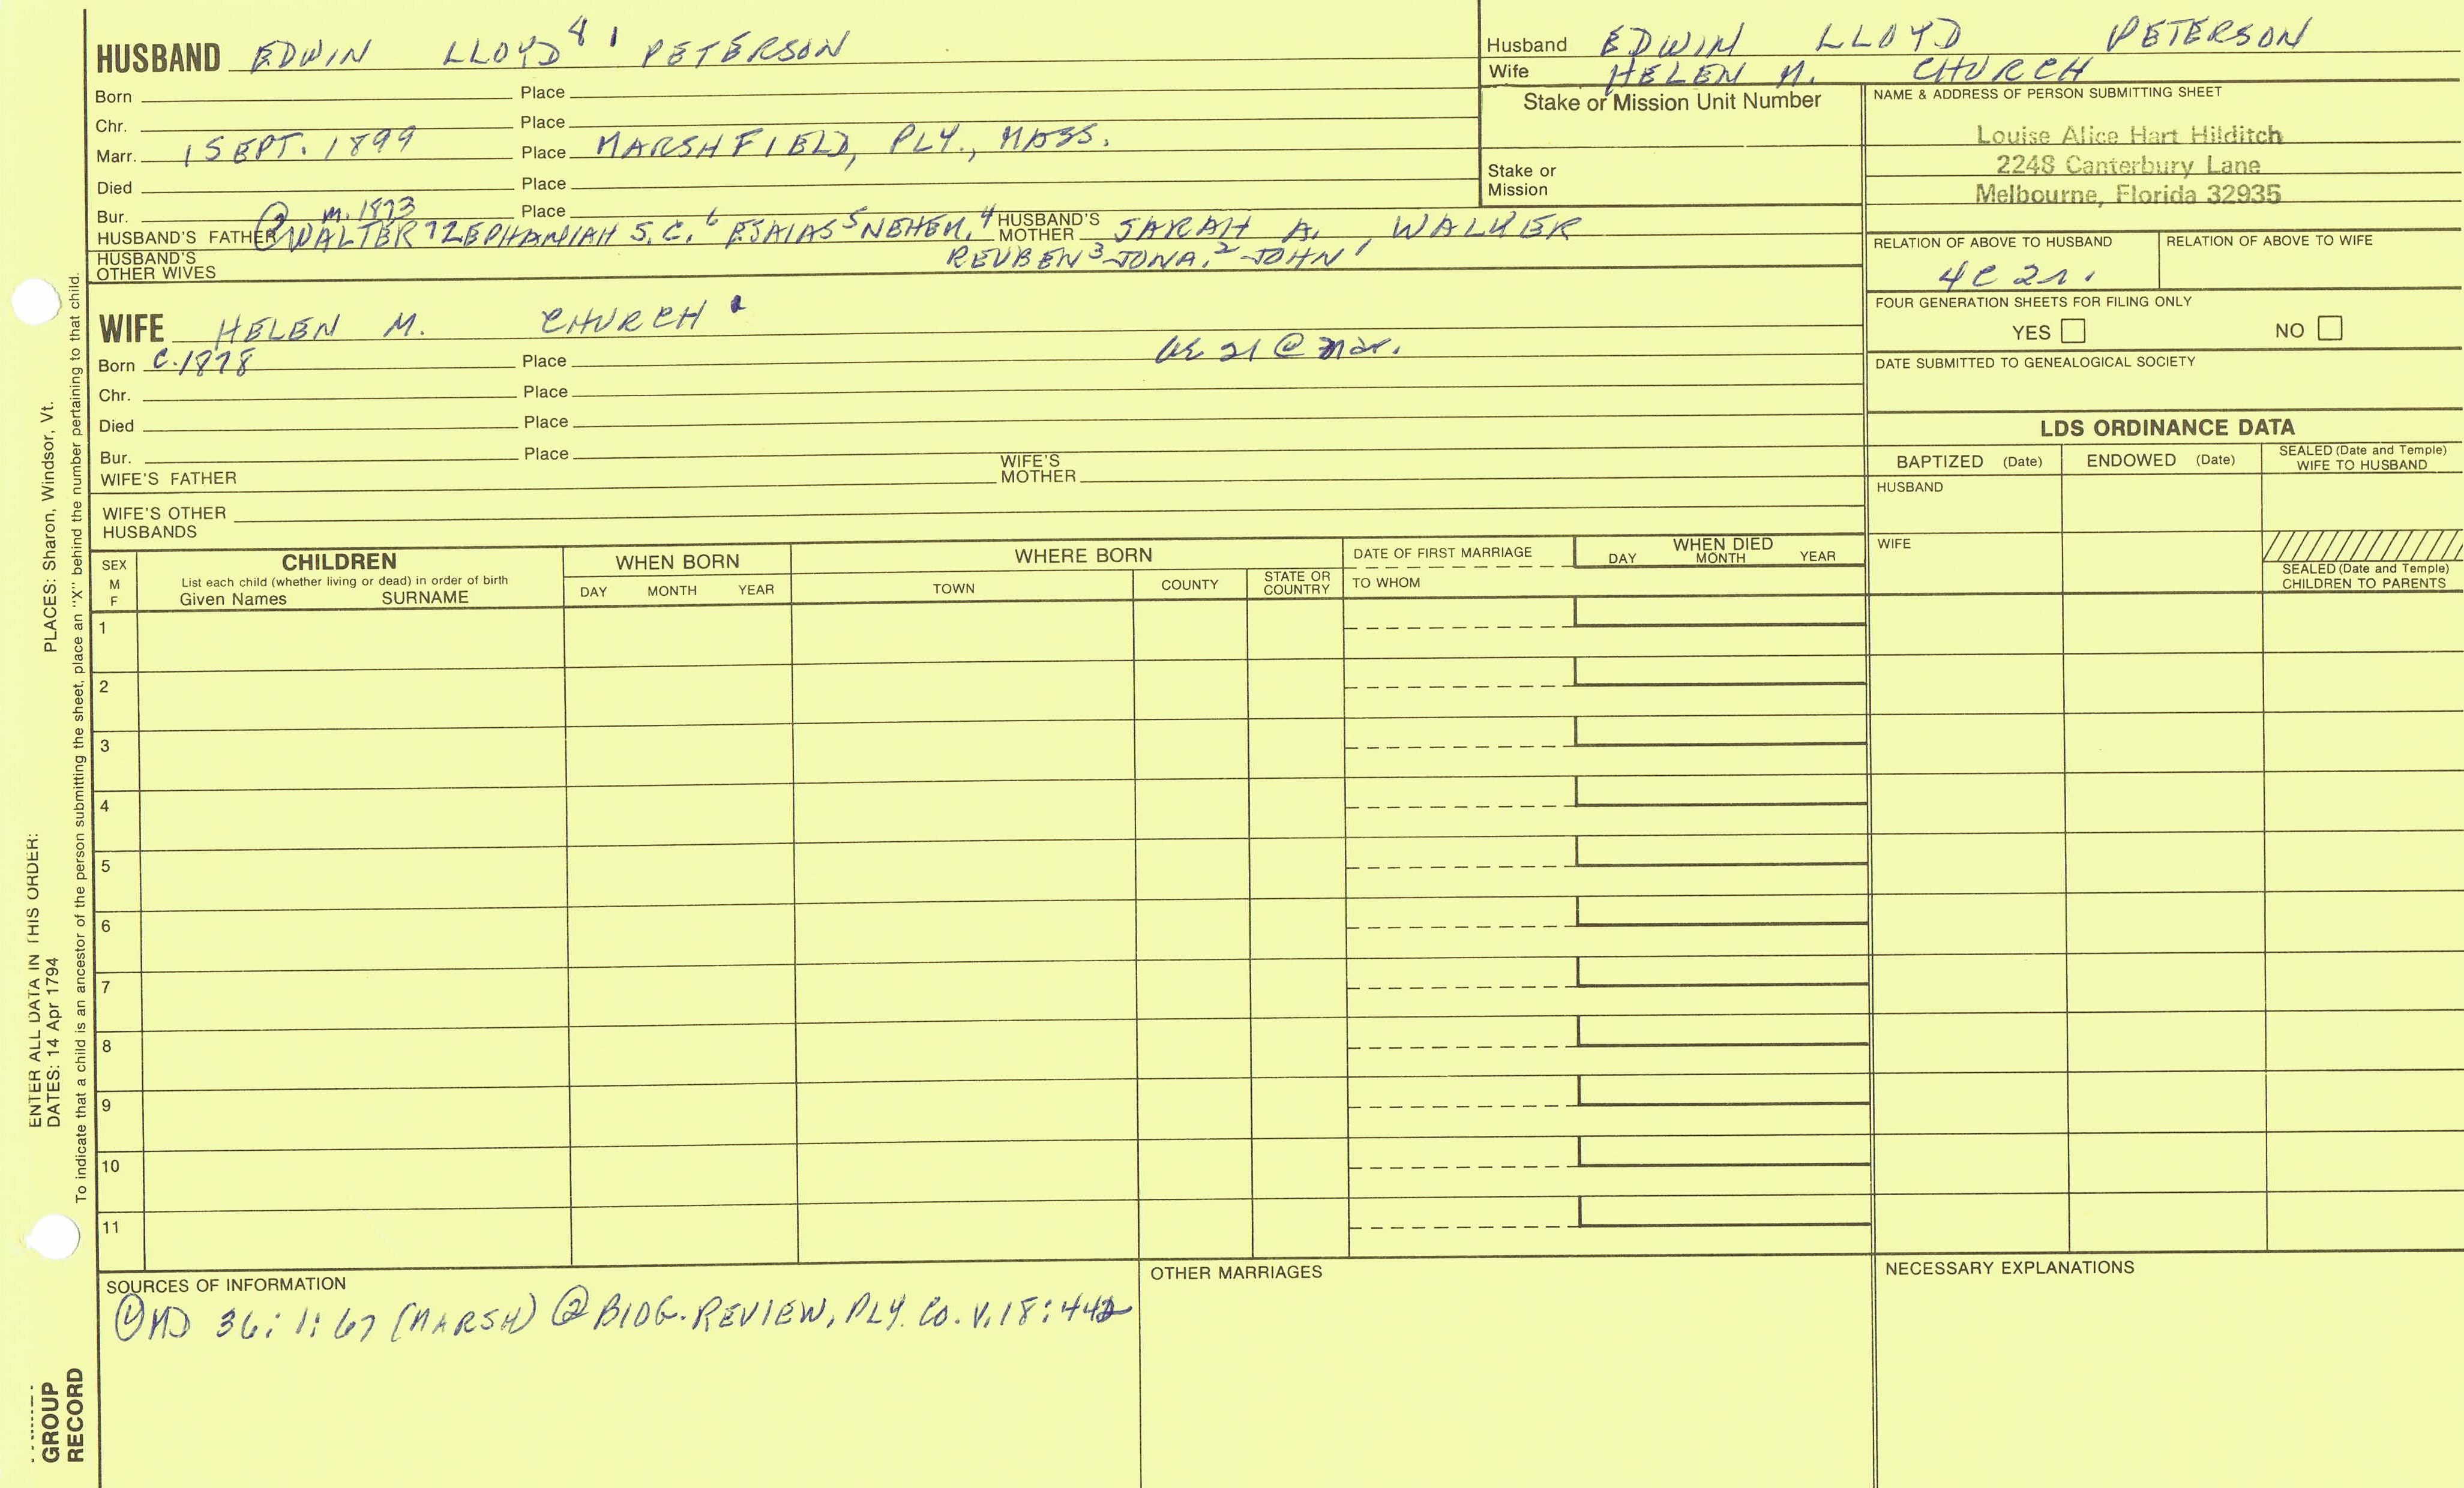 HUSBAND EDWIN LLOYD 8 1 PETERSON
Born Place
Chr. Place
Marr. 1 SEPT. 1899 Place MARSHFIELD, PLY., MASS.
Died Place
Bur. m. 1873 Place
HUSBAND'S FATHER ② WALTER 7 ZEPHANIAH S.C. 6 ESAIAS 5 NEHEM. 4 HUSBAND'S MOTHER SARAH A. WALKER
HUSBAND'S OTHER WIVES REUBEN 3 JONA. 2 JOHN 1
Husband EDWIN LLOYD PETERSON
Wife HELEN M. CHURCH
Stake or Mission Unit Number
Stake or
Mission
NAME & ADDRESS OF PERSON SUBMITTING SHEET
Louise Alice Hart Hilditch
2248 Canterbury Lane
Melbourne, Florida 32935
RELATION OF ABOVE TO HUSBAND RELATION OF ABOVE TO WIFE
4C 2r.
FOUR GENERATION SHEETS FOR FILING ONLY
YES NO
DATE SUBMITTED TO GENEALOGICAL SOCIETY
WIFE HELEN M. CHURCH
Born C. 1878 Place 21 @ mar.
Chr. Place
Died Place
Bur. Place
WIFE'S FATHER WIFE'S MOTHER
WIFE'S OTHER
HUSBANDS
LDS ORDINANCE DATA
BAPTIZED (Date) ENDOWED (Date) SEALED (Date and Temple) WIFE TO HUSBAND
HUSBAND
WIFE
SEALED (Date and Temple)
CHILDREN TO PARENTS
SEX M F
CHILDREN
List each child (whether living or dead) in order of birth
Given Names SURNAME
WHEN BORN
DAY MONTH YEAR
WHERE BORN
TOWN COUNTY STATE OR COUNTRY
DATE OF FIRST MARRIAGE
TO WHOM
WHEN DIED
DAY MONTH YEAR
1
2
3
4
5
6
7
8
9
10
11
SOURCES OF INFORMATION
① MD 36:1:67 (MARSH) ② BIOG. REVIEW, PLY. CO. V. 18:442
OTHER MARRIAGES
NECESSARY EXPLANATIONS
ENTER ALL DATA IN THIS ORDER:
DATES: 14 Apr 1794 PLACES: Sharon, Windsor, Vt.
To indicate that a child is an ancestor of the person submitting the sheet, place an "X" behind the number pertaining to that child.
GROUP
RECORD